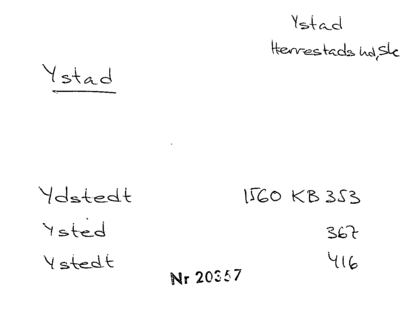 Ystad
Herrestads hd, Sk
Ystad
Ydstedt 1560 KB 353
Ysted 367
Ystedt 416
Nr 20357